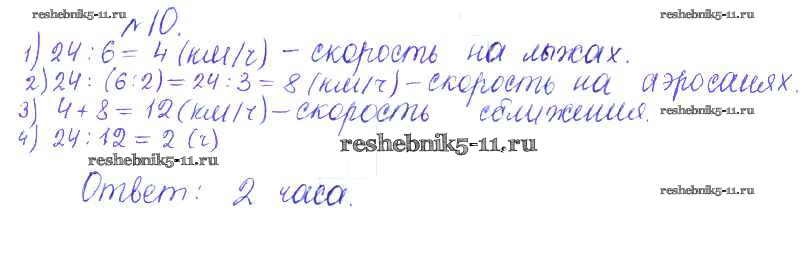 reshebnik5-11.ru
№10.
reshebnik5-11.ru
1) 24 : 6 = 4 (км/ч) - скорость на лыжах.
2) 24 : (6:2) = 24 : 3 = 8 (км/ч) - скорость на аэросанях.
3) 4 + 8 = 12 (км/ч) - скорость сближения.
reshebnik5-11.ru
4) 24 : 12 = 2 (ч)
reshebnik5-11.ru
reshebnik5-11.ru
Ответ: 2 часа.
reshebnik5-11.ru